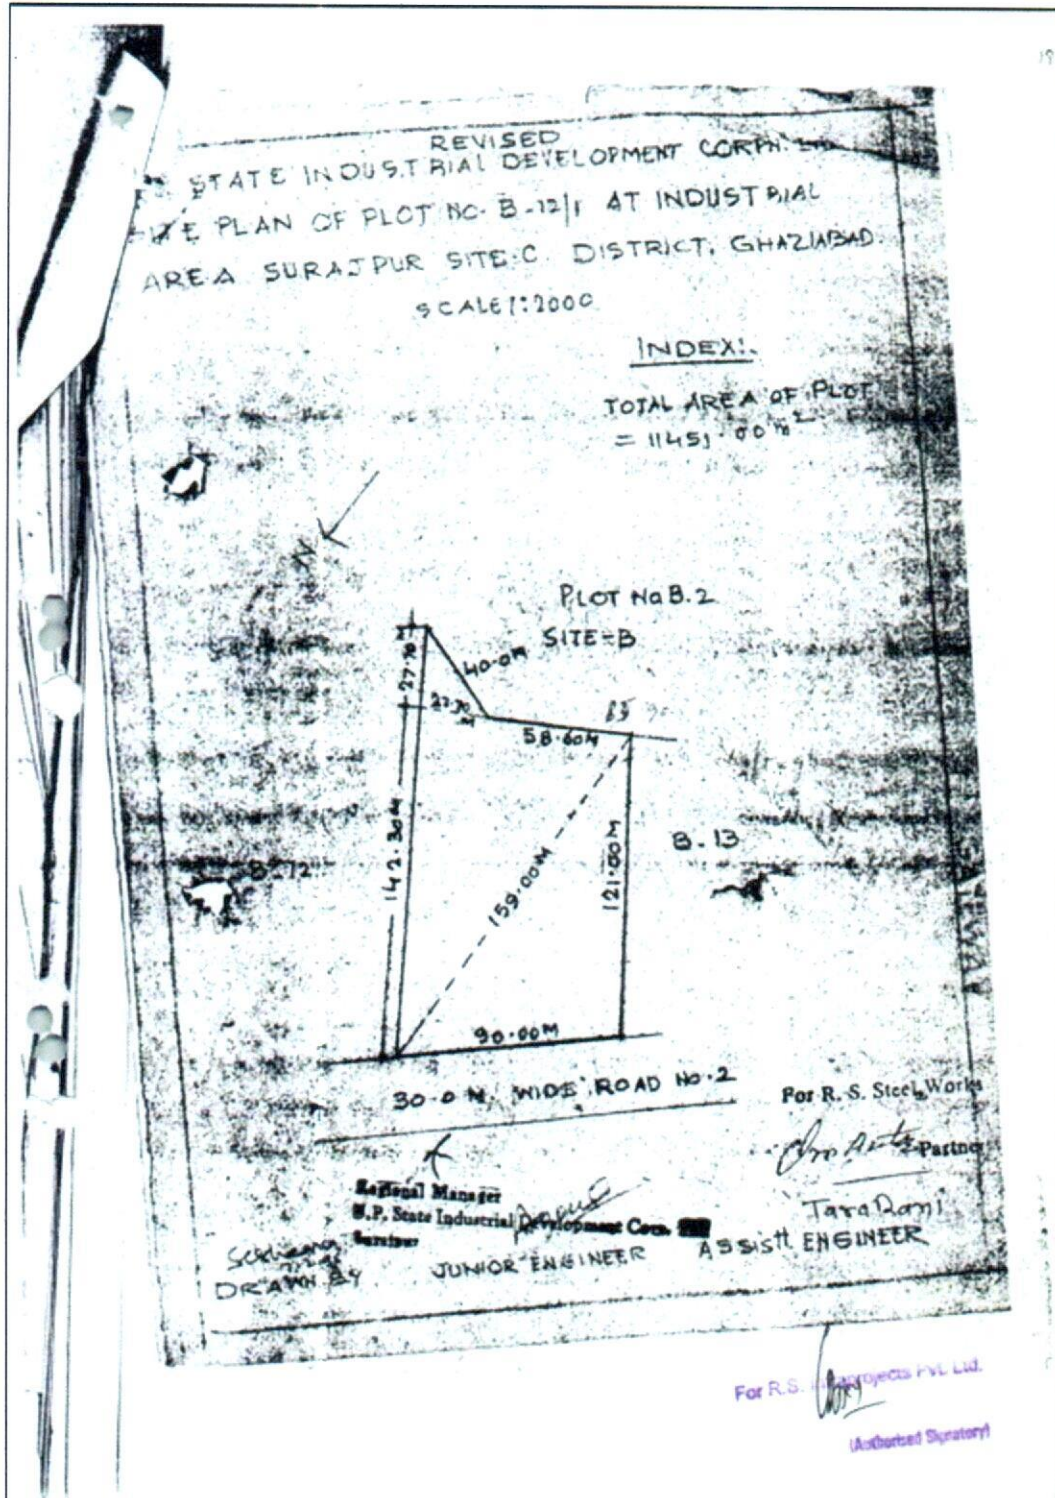 REVISED
STATE INDUSTRIAL DEVELOPMENT CORPN. LTD
SITE PLAN OF PLOT NO. B-12/1 AT INDUSTRIAL
AREA SURAJPUR SITE-C DISTRICT, GHAZIABAD.
SCALE 1:2000
INDEX:-
TOTAL AREA OF PLOT
= 11451.00 m²
N
PLOT No B.2
SITE-B
40.0M
27.70
27.70
M
85
58.60M
142.30M
159.00M
121.00M
B-12
B-13
90.00M
30.0 M. WIDE ROAD NO.2
For R. S. Steel Works
Partner
Regional Manager
U.P. State Industrial Development Corp.
Tara Rani
JUNIOR ENGINEER
ASSISTT. ENGINEER
DRAWN BY
For R.S. Infraprojects Pvt. Ltd.
(Authorised Signatory)